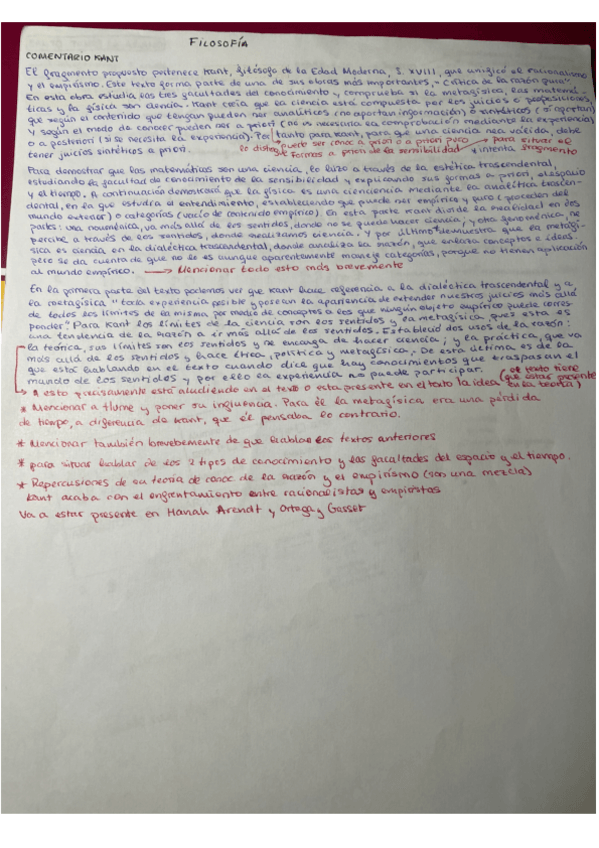 FILOSOFÍA
COMENTARIO KANT
El fragmento propuesto pertenece Kant, filósofo de la Edad Moderna, S. XVIII, que unificó el racionalismo
y el empirismo. Este texto forma parte de una de sus obras más importantes, "Crítica de la razón pura"
En esta obra estudia las tres facultades del conocimiento y comprueba si la metafísica, las matemá-
ticas y la física son ciencia. Kant creía que la ciencia está compuesta por los juicios o proposiciones,
que según el contenido que tengan pueden ser analíticos (no aportan información) o sintéticos (sí aportan)
y según el modo de conocer pueden ser a priori (no es necesaria la comprobación mediante la experiencia)
o a posteriori (si se necesita la experiencia). Por tanto para Kant, para que una ciencia sea válida, debe
tener juicios sintéticos a priori.
puesto ser conoc a priori o a priori puro → para situar el
formas a priori de la sensibilidad intenta fragmento
Para demostrar que las matemáticas son una ciencia, lo hizo a través de la estética trascendental,
estudiando la facultad de conocimiento de la sensibilidad y explicando sus formas a priori, el espacio
y el tiempo. A continuación demostrará que la física es una ciencia mediante la analítica trascen-
dental, en la que estudia el entendimiento, estableciendo que puede ser empírico y puro (proceden del
mundo exterior) o categorías (vacío de contenido empírico). En esta parte Kant divide la realidad en dos
partes: una nouménica, va más allá de los sentidos, donde no se puede hacer ciencia; y otra fenoménica, se
percibe a través de los sentidos, donde realizamos ciencia. Y por último demuestra que la metafí-
sica es ciencia en la dialéctica trascendental, donde analiza la razón, que enlaza conceptos e ideas.
pero se da cuenta de que no lo es aunque aparentemente maneje categorías, porque no tienen aplicación
al mundo empírico. → Mencionar todo esto más brevemente
En la primera parte del texto podemos ver que Kant hace referencia a la dialéctica trascendental y a
la metafísica "toda experiencia posible y posean la apariencia de extender nuestros juicios más allá
de todos los límites de la misma por medio de conceptos a los que ningún objeto empírico puede corres-
ponder". Para Kant los límites de la ciencia son los sentidos y la metafísica pues esta es
una tendencia de la razón a ir más allá de los sentidos. Estableció dos usos de la razón:
la teórica, sus límites son los sentidos y se encarga de hacer ciencia; y la práctica, que va
más allá de los sentidos y hace ética, política y metafísica. De esta última es de la
que está hablando en el texto cuando dice que hay conocimientos que traspasan el
mundo de los sentidos y por ello la experiencia no puede participar. (el texto tiene
que estar presente
→ A esto precisamente está aludiendo en el texto o esta presente en el texto la idea en la teoría)
* Mencionar a Hume y poner su influencia. Para él la metafísica era una pérdida
de tiempo, a diferencia de Kant, que él pensaba lo contrario.
* Mencionar también brevemente de que hablan los textos anteriores
* para situar hablar de los 2 tipos de conocimiento y las facultades del espacio y el tiempo.
* Repercusiones de su teoría de conoc de la razón y el empirismo (son una mezcla)
Kant acaba con el enfrentamiento entre racionalistas y empiristas
Va a estar presente en Hanah Arendt y Ortega y Gasset